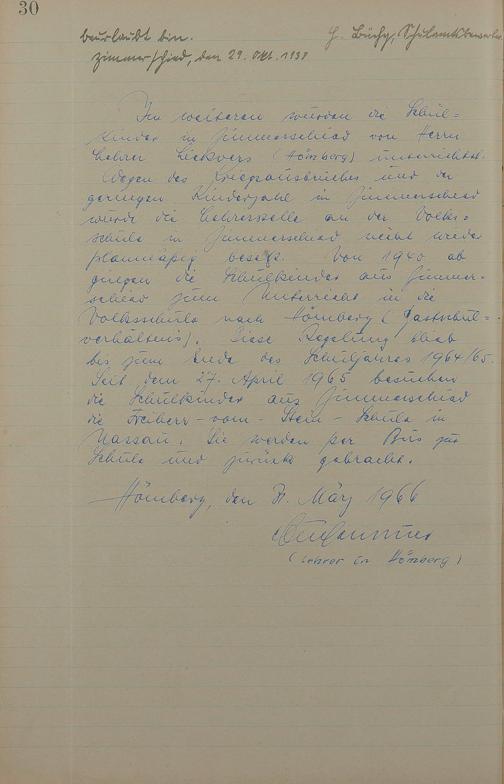 30
beurlaubt bin.
H. Büchy, Schulamtsbewerber
Zimmerschied, den 29. Okt. 1939
Im weiteren wurden die Schul=
kinder in Zimmerschied von Herrn
Lehrer (Hömberg) unterrichtet.
Wegen des Kriegsausbruches und der
geringen Kinderzahl in Zimmerschied
wurde die Lehrerstelle an der Volks=
schule in Zimmerschied nicht wieder
planmäßig besetzt. Von 1940 ab
gingen die Schulkinder aus Zimmer-
schied zum Unterricht in die
Volksschule nach Hömberg (Gastschul=
verhältnis). Diese Regelung blieb
bis zum Ende des Schuljahres 1964/65.
Seit dem 27. April 1965 besuchen
die Schulkinder aus Zimmerschied
die Freiherr-vom-Stein-Schule in
Nassau. Sie werden per Bus zur
Schule und zurück gebracht.
Hömberg, den 31. März 1966
(Lehrer in Hömberg)